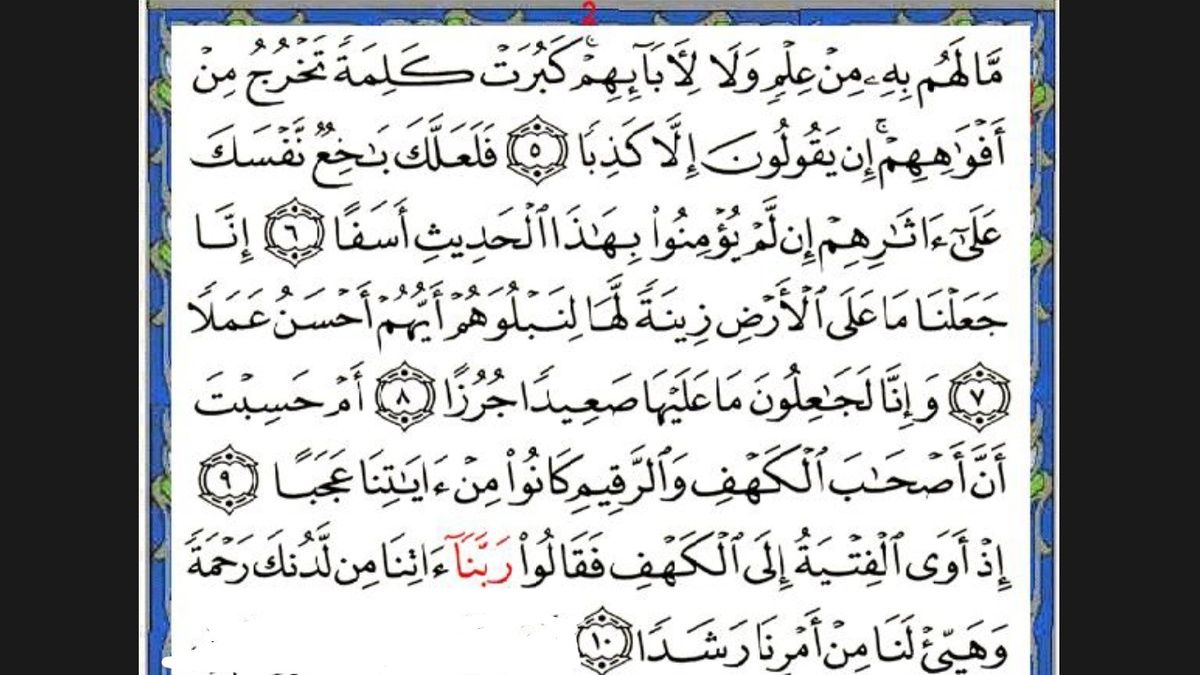 2
مَّا لَهُم بِهِۦ مِنْ عِلْمٍ وَلَا لِأَبَآئِهِمْ ۚ كَبُرَتْ كَلِمَةً تَخْرُجُ مِنْ
أَفْوَٰهِهِمْ ۚ إِن يَقُولُونَ إِلَّا كَذِبًا ٥ فَلَعَلَّكَ بَٰخِعٌ نَّفْسَكَ
عَلَىٰٓ ءَاثَٰرِهِمْ إِن لَّمْ يُؤْمِنُوا۟ بِهَٰذَا ٱلْحَدِيثِ أَسَفًا ٦ إِنَّا
جَعَلْنَا مَا عَلَى ٱلْأَرْضِ زِينَةً لَّهَا لِنَبْلُوَهُمْ أَيُّهُمْ أَحْسَنُ عَمَلًا
٧ وَإِنَّا لَجَٰعِلُونَ مَا عَلَيْهَا صَعِيدًا جُرُزًا ٨ أَمْ حَسِبْتَ
أَنَّ أَصْحَٰبَ ٱلْكَهْفِ وَٱلرَّقِيمِ كَانُوا۟ مِنْ ءَايَٰتِنَا عَجَبًا ٩
إِذْ أَوَى ٱلْفِتْيَةُ إِلَى ٱلْكَهْفِ فَقَالُوا۟ رَبَّنَآ ءَاتِنَا مِن لَّدُنكَ رَحْمَةً
وَهَيِّئْ لَنَا مِنْ أَمْرِنَا رَشَدًا ١٠